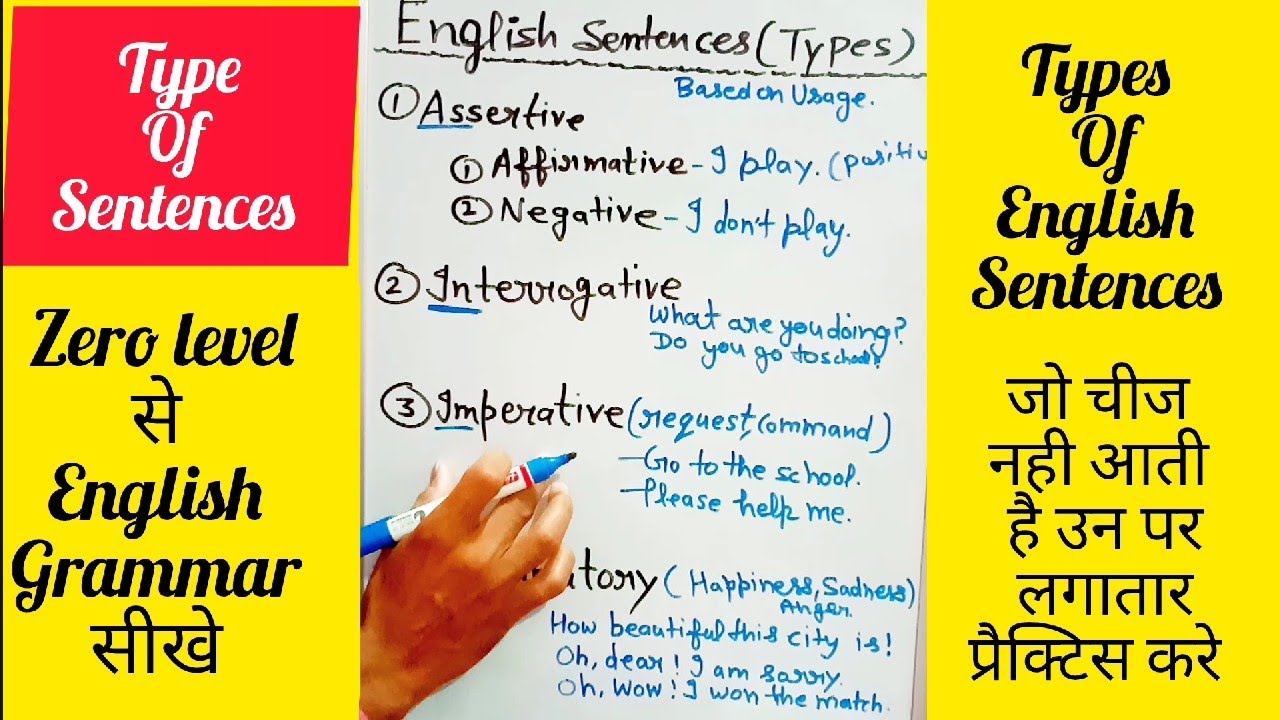 Type
Of
Sentences
Zero level
से
English
Grammar
सीखे
English Sentences (Types)
Based on Usage.
① Assertive
① Affirmative - I play. (Positiv
② Negative - I don't play.
② Interrogative
What are you doing?
Do you go to school?
③ Imperative (request, command)
- Go to the school.
- Please help me.
atory (Happiness, Sadness)
Anger.
How beautiful this city is!
Oh, dear! I am sorry.
Oh, Wow! I won the match.
Types
Of
English
Sentences
जो चीज
नही आती
है उन पर
लगातार
प्रैक्टिस करे